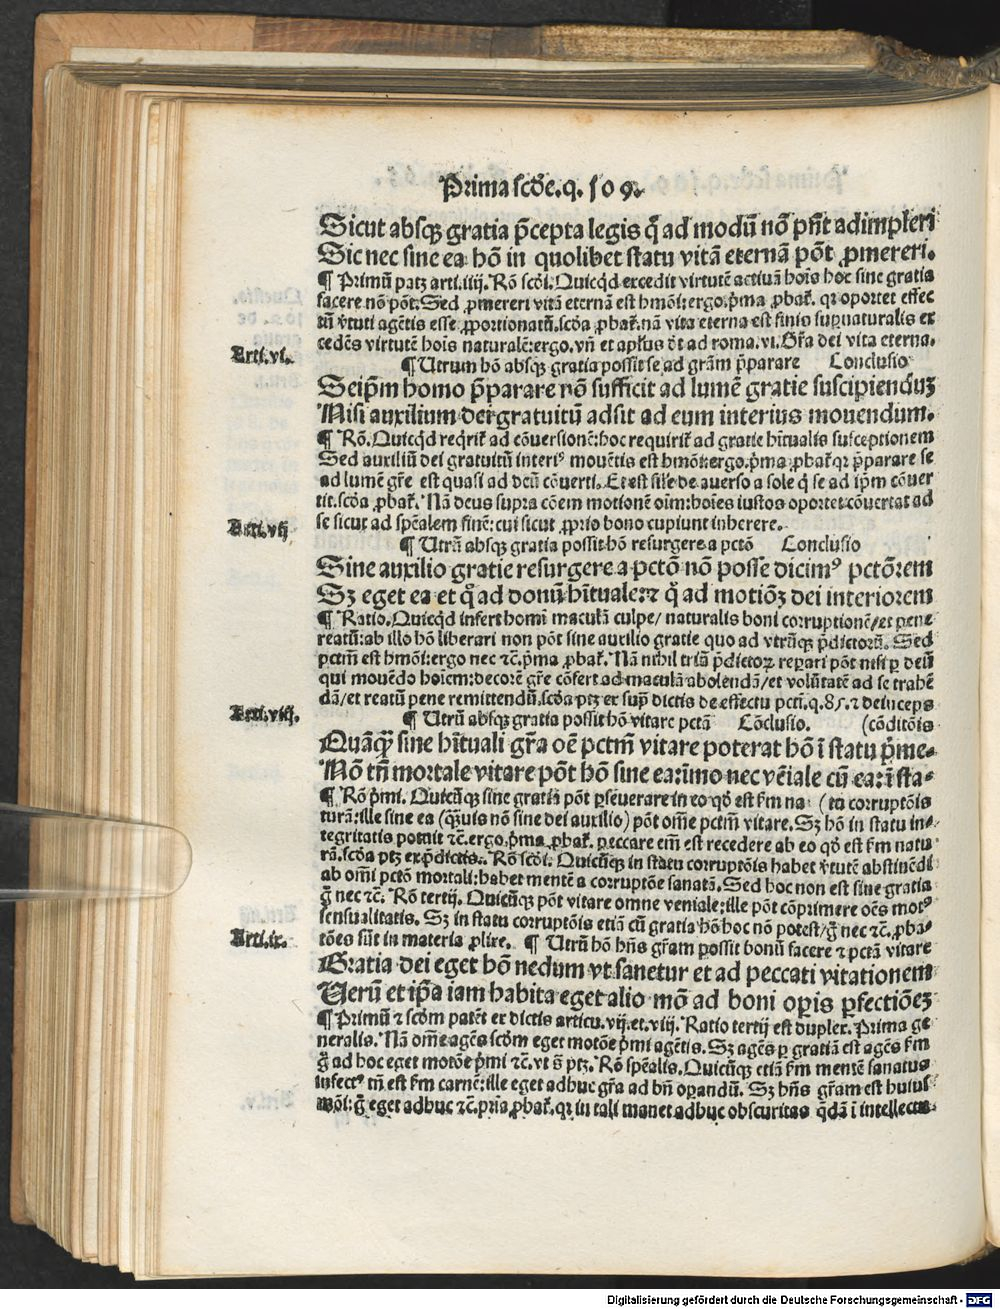 Prima scde. q. 109.
Sicut absqꝫ gratia p̄cepta legis q̊ ad modū nō pn̄t adimpleri
Sic nec sine ea hō in quolibet statu vitā eternā pōt ꝓmereri.
¶ Primū patꝫ arti. iiij. Rō scd̄i. Quicqd excedit virtutē actiuā hoīs hoc sine gratia
facere nō pōt. Sed ꝓmereri vitā eternā est hmōi: ergo. p̄ma ꝓbat̄. qꝛ oportet effec
tū v̄tuti agētis esse ꝓportionatū. scd̄a ꝓbat̄. nā vita eterna est finis suꝑnaturalis ex
cedēs virtutē hoīs naturalē: ergo. vn̄ et apl̄us d̄t ad roma. vi. Gr̄a dei vita eterna.
Arti. vi.
¶ Utrum hō absqꝫ gratia possit se ad grām p̄parare Conclusio
Seip̄m homo p̄parare nō sufficit ad lumē gratie suscipienduꝫ
Nisi auxilium dei gratuitū adsit ad eum interius mouendum.
¶ Rō. Quicqd reqrit̄ ad cōuersionē: hoc requirit̄ ad gratie hītualis susceptionem
Sed auxiliū dei gratuitū interiꝰ mouētis est hmōi: ergo. p̄ma ꝓbat̄ qꝛ p̄parare se
ad lumē gr̄e est quasi ad deū cōuerti. Et est sil̄e de auerso a sole q̊ se ad ip̄m cōuer
tit. scd̄a ꝓbat̄. Nā deus supra cōem motionē oīm: hoīes iustos oportet cōuertat ad
Arti. vij
se sicut ad spēalem finē: cui sicut ꝓprio bono cupiunt inherere.
¶ Utrū absqꝫ gratia possit hō resurgere a pctō Conclusio
Sine auxilio gratie resurgere a pctō nō posse dicimꝰ pctōrem
Sꝫ eget ea et q̊ ad donū hītuale: ⁊ q̊ ad motiōꝫ dei interiorem
¶ Ratio. Quicqd infert homī maculā culpe/ naturalis boni corruptionē/ et pene
reatū: ab illo hō liberari non pōt sine auxilio gratie quo ad vtrūqꝫ p̄dictorū. Sed
pctm̄ est hmōi: ergo nec ⁊c. p̄ma ꝓbat̄. Nā nihil triū p̄dictoꝝ reꝑari pōt nisi ꝑ deū
qui mouēdo hoīem: decorē gr̄e cōfert ad maculā abolendā/ et volūtatē ad se trahē
dā/ et reatū pene remittendū. scd̄a ptꝫ ex sup̄ dictis de effectu pctī. q. 85. ⁊ deinceps
Arti. viij.
¶ Utrū absqꝫ gratia possit hō vitare pctā Cōclusio. (cōditōis
Quāqꝫ sine hītuali gr̄a oē pctm̄ vitare poterat hō ī statu p̄me-
Nō tn̄ mortale vitare pōt hō sine ea: īmo nec vēiale cū ea: ī sta-
¶ Rō p̄mi. Quicūqꝫ sine gratia pōt ꝑseuerare in eo qd̄ est fm̄ na- (tu corruptōis
turā: ille sine ea (qꝫuis nō sine dei auxilio) pōt omē pctm̄ vitare. Sꝫ hō in statu in-
tegritatis potuit ⁊c. ergo. p̄ma ꝓbat̄. peccare em̄ est recedere ab eo qd̄ est fm̄ natu
rā. scd̄a ptꝫ ex p̄dictis. Rō scd̄i. Quicūqꝫ in statu corruptōis habet v̄tutē abstinēdi
ab omī pctō mortali: habet mentē a corruptōe sanatā. Sed hoc non est sine gratia
g̊ nec ⁊c. Rō tertij. Quicūqꝫ pōt vitare omne veniale: ille pōt cōprimere oēs motꝰ
sensualitatis. Sꝫ in statu corruptōis etiā cū gratia hō hoc nō potest/ g̊ nec ⁊c. ꝓba-
Arti. ix.
tōes sūt in materia ꝓlixe. ¶ Utrū hō hn̄s gr̄am possit bonū facere ⁊ pctā vitare
Gratia dei eget hō nedum vt sanetur et ad peccati vitationem
Uerū et ip̄a iam habita eget alio mō ad boni oꝑis ꝑfectiōeꝫ
¶ Primū ⁊ scd̄m patēt ex dictis articu. vij. et. viij. Ratio tertij est duplex. Prima ge
neralis. Nā omē agēs scd̄m eget motōe p̄mi agētis. Sꝫ agēs ꝑ gratiā est agēs fm̄
g̊ ad hoc eget motōe p̄mi ⁊c. vt s̄ ptꝫ. Rō spēalis. Quicūqꝫ etiā fm̄ mentē sanatus
infectꝰ tn̄ est fm̄ carnē: ille eget adhuc gr̄a ad bn̄ oꝑandū. Sꝫ hn̄s gr̄am est huius
mōi: g̊ eget adhuc ⁊c. pria ꝓbat̄. qꝛ in tali manet adhuc obscuritas qdā ī intellectu
Digitalisierung gefördert durch die Deutsche Forschungsgemeinschaft - DFG